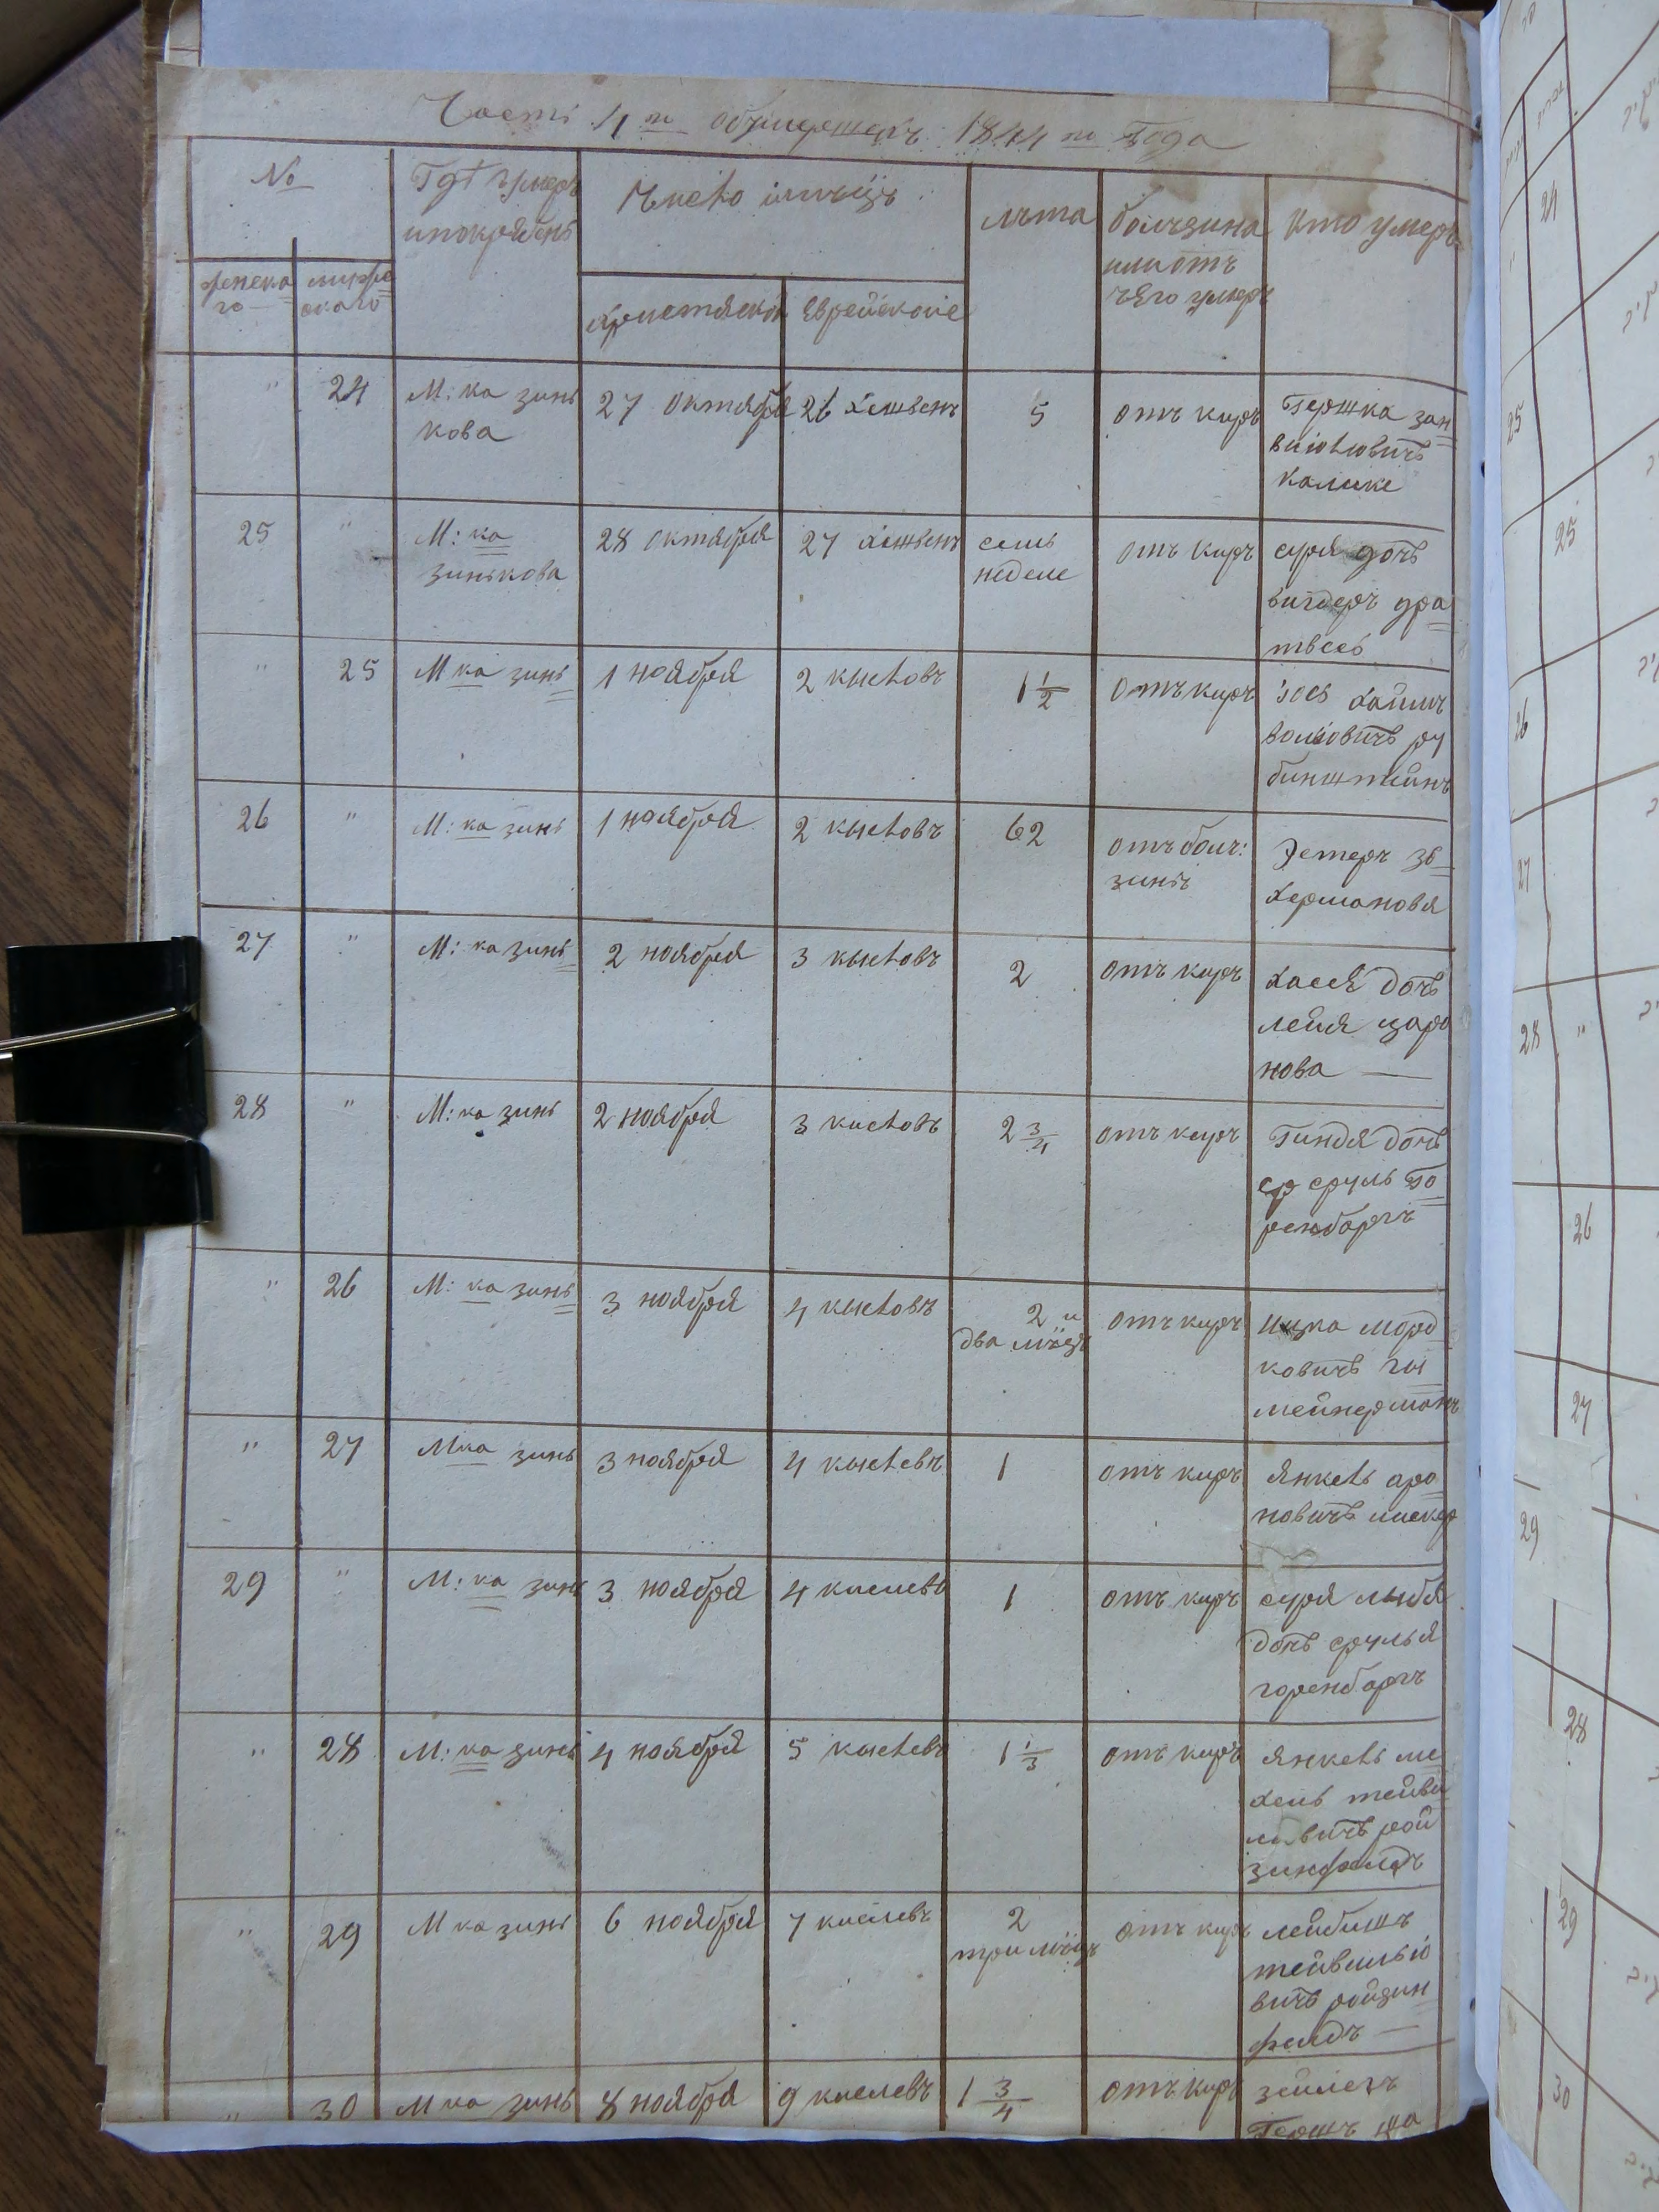 Часть 4 я объ умершехъ 1844 го Года
№
Гдѣ умеръ
и покребенъ
Число и мѣцъ
лѣта
болѣзина
или отъ
чего умеръ
Кто умеръ
женска
го
мужде
скаго
христианской
Еврейские
" 24 М: ка зинь
кова
27 октября 26 хешвень 5 отъ киръ Гершка зан
вилiовичь
калике
25 " М: ка
зинькова
28 октября 27 хешвень семь
неделе
отъ киръ суря дочь
вигдеръ дра
твесъ
" 25 М ка зинь 1 ноября 2 кыслѣвъ 1 1/2 отъ киръ iось хаимъ
вольовичь ру
бинштейнъ
26 " М: ка зинь 1 ноября 2 кыслѣвъ 62 отъ болѣ:
зинь
Эстеръ зе
хермановя
27 " М: ка зинь 2 ноября 3 кыслѣвъ 2 отъ киръ хася дочь
лейя царо
нова —
28 " М: ка зинь 2 ноября 3 кислѣвъ 2 3/4 отъ киръ Гиндя дочь
ср сруль го
ренбаргъ
" 26 М: ка зинь 3 ноября 4 кыслѣвъ 2 и
два мѣцъ
отъ киръ ицка морд
ковичь
мейнерманъ
" 27 М ка зинь 3 ноября 4 кыслевъ 1 отъ киръ янкель аро
новичь
29 " М: ка зинь 3 ноября 4 кислевъ 1 отъ киръ суря лыбя
дочь срулья
горенбаргъ
" 28 М: ка зинь 4 ноября 5 кыслевъ 1 1/3 отъ киръ янкель ме
хель тейви
левичь рой
зинфелдъ
" 29 М ка зинь 6 ноября 7 кислевъ 2
три мѣцъ
отъ киръ лейбишъ
тейвильiо
вичь ройзин
фелдъ —
" 30 М ка зинь 8 ноября 9 кислевъ 1 3/4 отъ киръ зейлегъ
Гершъ ша
24
25
25
26
27
28 "
26
27
29
28
29
30